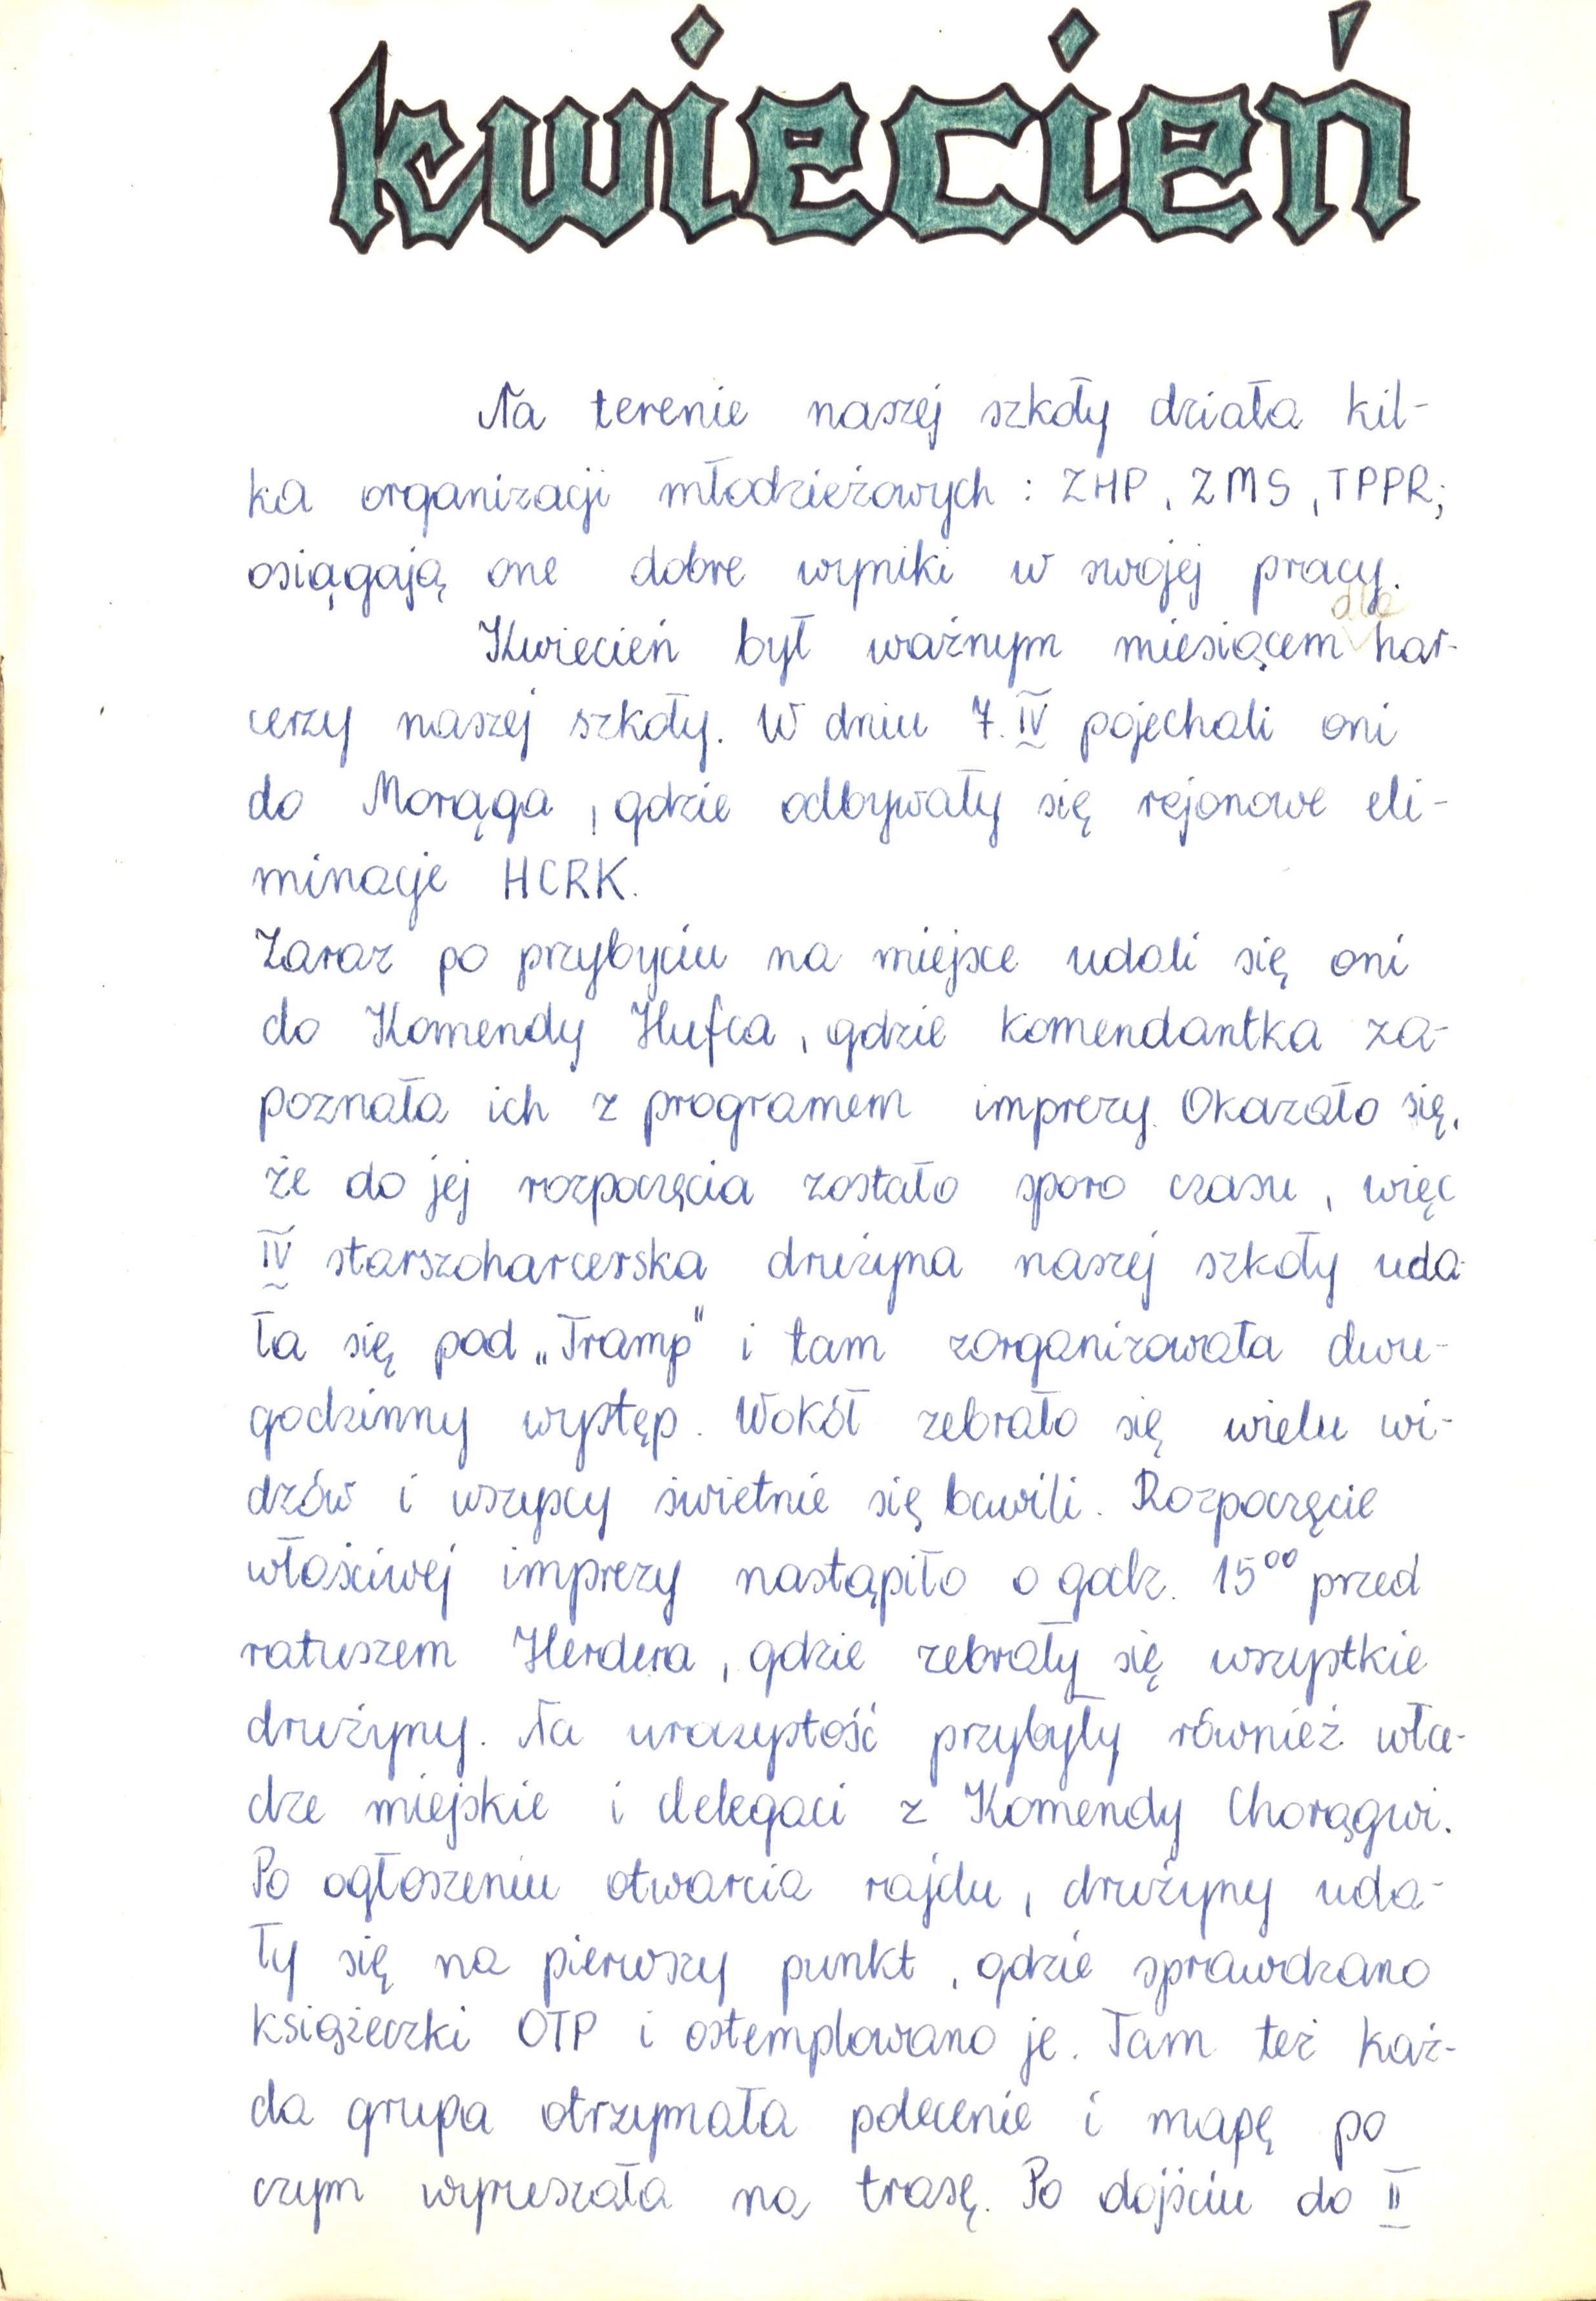 kwiecień
Na terenie naszej szkoły działa kil-
ka organizacji młodzieżowych : ZHP, ZMS, TPPR;
osiągają one dobre wyniki w swojej pracy.
Kwiecień był ważnym miesiącem dla har-
cerzy naszej szkoły. W dniu 7.IV pojechali oni
do Morąga, gdzie odbywały się rejonowe eli-
minacje HCRK.
Zaraz po przybyciu na miejsce udali się oni
do Komendy Hufca, gdzie komendantka za-
poznała ich z programem imprezy. Okazało się,
że do jej rozpoczęcia zostało sporo czasu, więc
IV starszoharcerska drużyna naszej szkoły uda-
ła się pod „Tramp" i tam zorganizowała dwu-
godzinny występ. Wokół zebrało się wielu wi-
dzów i wszyscy świetnie się bawili. Rozpoczęcie
właściwej imprezy nastąpiło o godz. 15⁰⁰ przed
ratuszem Herdera, gdzie zebrały się wszystkie
drużyny. Na uroczystość przybyły również wła-
dze miejskie i delegaci z Komendy Chorągwi.
Po ogłoszeniu otwarcia rajdu, drużyny uda-
ły się na pierwszy punkt, gdzie sprawdzano
książeczki OTP i ostemplowano je. Tam też każ-
da grupa otrzymała polecenie i mapę po
czym wyruszała na trasę. Po dojściu do II